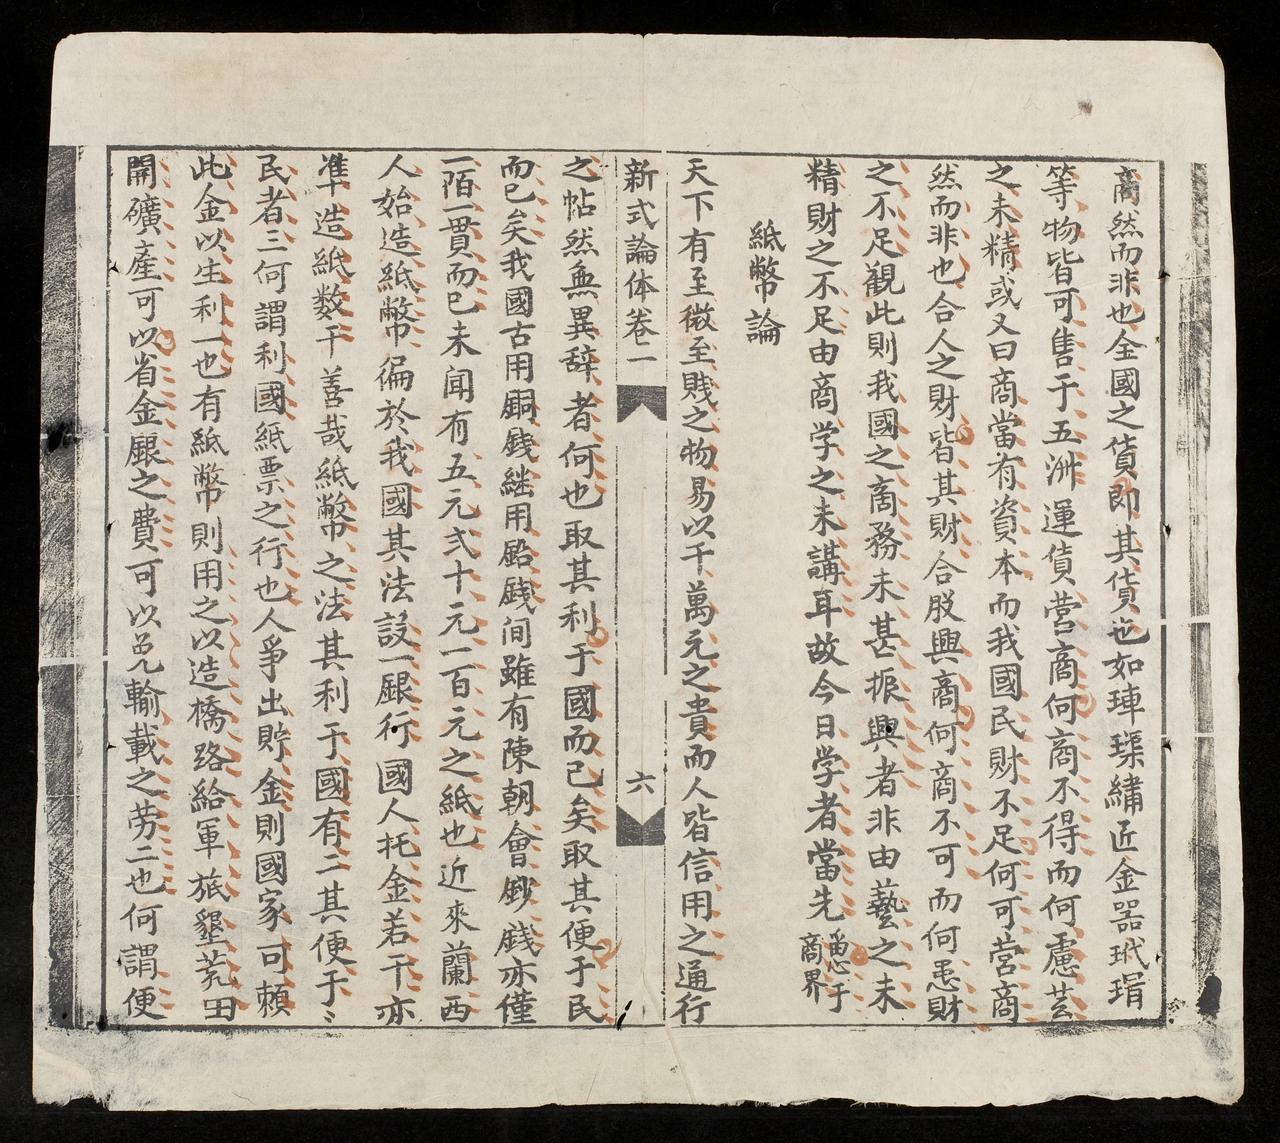 商然而非也全國之貨即其貨也如琿璖繡匠金器玳瑁
等物皆可售于五洲運貨营商何商不得而何慮芸
之未精或又曰商當有資本而我國民財不足何可营商
然而非也合人之財皆其財合股興商何商不可而何患財
之不足觀此則我國之商務未甚振興者非由藝之未
精財之不足由商学之未講耳故今日学者當先
商界
紙幣論
天下有至微至賤之物易以千萬元之貴而人皆信用之通行
新式論体卷一
六
之帖然無異辞者何也取其利于國而已矣取其便于民
而已矣我國古用銅錢継用鉛錢间雖有陳朝會鈔錢亦僅
一陌一貫而已未闻有五元弍十元一百元之紙也近來蘭西
人始造紙幣徧於我國其法設一銀行國人托金若干亦
准造紙数千善哉紙幣之法其利于國有二其便于〻
民者三何謂利國紙票之行也人爭出貯金則國家可頼
此金以生利一也有紙幣則用之以造橋路給軍旅墾荒田
開礦產可以省金銀之費可以免輸載之劳二也何謂便